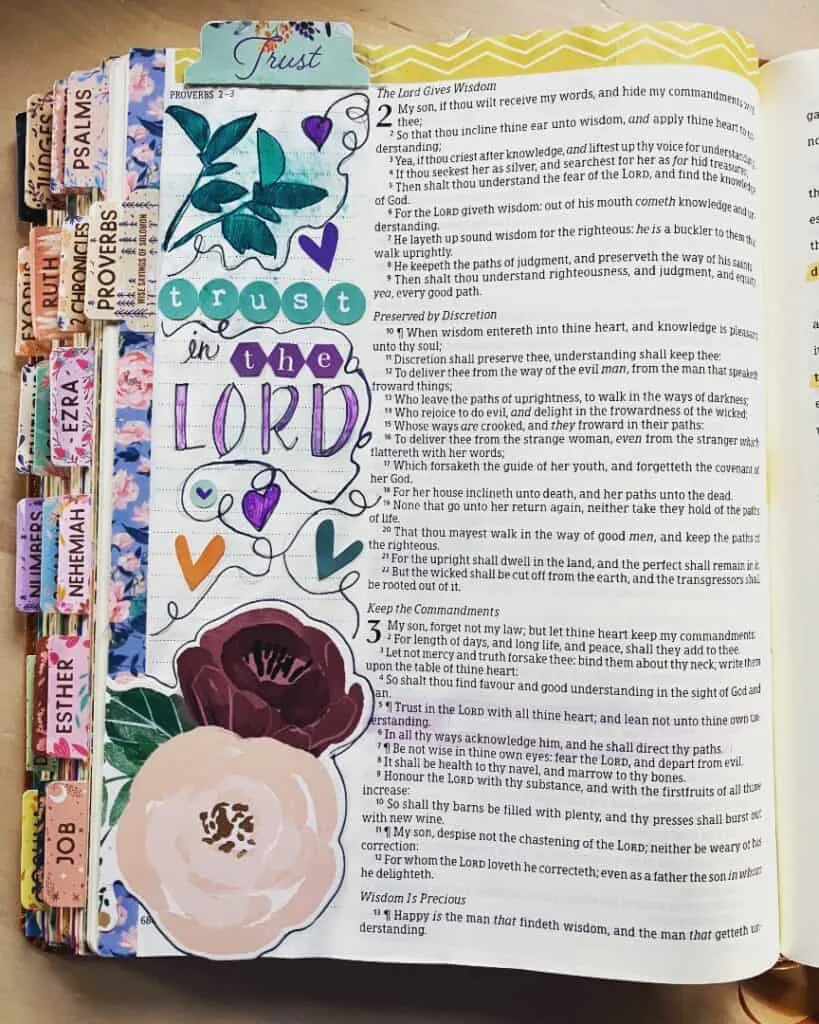 Trust
PROVERBS 2-3
JUDGES
PSALMS
EXODUS
RUTH
2 CHRONICLES
PROVERBS
WISE SAYINGS OF SOLOMON
EZRA
NUMBERS
NEHEMIAH
ESTHER
JOB
trust
in the
LORD
68
The Lord Gives Wisdom
2 My son, if thou wilt receive my words, and hide my commandments
thee;
2 So that thou incline thine ear unto wisdom, and apply thine heart to
derstanding;
3 Yea, if thou criest after knowledge, and liftest up thy voice for understanding;
4 If thou seekest her as silver, and searchest for her as for hid treasures;
5 Then shalt thou understand the fear of the LORD, and find the knowledge
of God.
6 For the LORD giveth wisdom: out of his mouth cometh knowledge and un-
derstanding.
7 He layeth up sound wisdom for the righteous: he is a buckler to them that
walk uprightly.
8 He keepeth the paths of judgment, and preserveth the way of his saints
9 Then shalt thou understand righteousness, and judgment, and equity
yea, every good path.
Preserved by Discretion
10 ¶ When wisdom entereth into thine heart, and knowledge is pleasant
unto thy soul;
11 Discretion shall preserve thee, understanding shall keep thee:
12 To deliver thee from the way of the evil man, from the man that speaketh
froward things;
13 Who leave the paths of uprightness, to walk in the ways of darkness;
14 Who rejoice to do evil, and delight in the frowardness of the wicked;
15 Whose ways are crooked, and they froward in their paths:
16 To deliver thee from the strange woman, even from the stranger which
flattereth with her words;
17 Which forsaketh the guide of her youth, and forgetteth the covenant of
her God.
18 For her house inclineth unto death, and her paths unto the dead.
19 None that go unto her return again, neither take they hold of the paths
of life.
20 That thou mayest walk in the way of good men, and keep the paths of
the righteous.
21 For the upright shall dwell in the land, and the perfect shall remain in it.
22 But the wicked shall be cut off from the earth, and the transgressors shall
be rooted out of it.
Keep the Commandments
3 My son, forget not my law; but let thine heart keep my commandments:
2 For length of days, and long life, and peace, shall they add to thee.
3 Let not mercy and truth forsake thee: bind them about thy neck; write them
upon the table of thine heart:
4 So shalt thou find favour and good understanding in the sight of God and
an.
5 ¶ Trust in the LORD with all thine heart; and lean not unto thine own un-
erstanding.
6 In all thy ways acknowledge him, and he shall direct thy paths.
7 ¶ Be not wise in thine own eyes: fear the LORD, and depart from evil.
8 It shall be health to thy navel, and marrow to thy bones.
9 Honour the LORD with thy substance, and with the firstfruits of all thine
increase:
10 So shall thy barns be filled with plenty, and thy presses shall burst out
with new wine.
11 ¶ My son, despise not the chastening of the LORD; neither be weary of his
correction:
12 For whom the LORD loveth he correcteth; even as a father the son in whom
he delighteth.
Wisdom Is Precious
13 ¶ Happy is the man that findeth wisdom, and the man that getteth un-
derstanding.